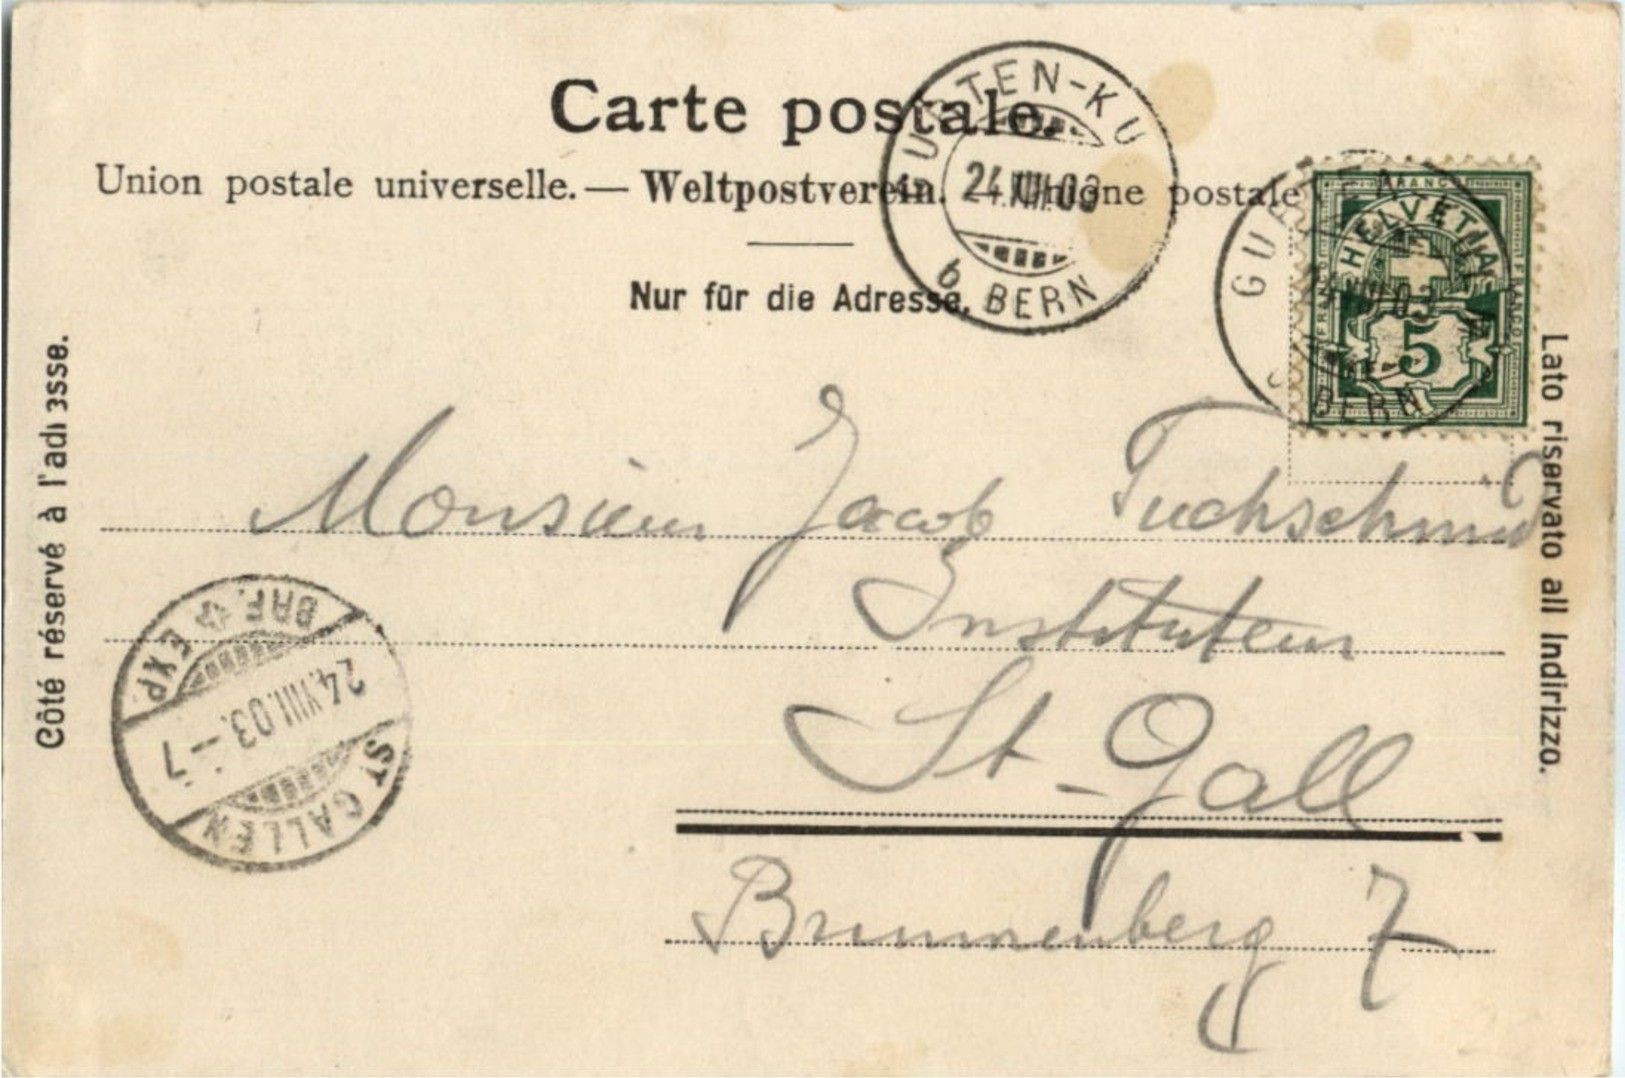 Carte postale.
Union postale universelle. — Weltpostverein. Unione postale
Nur für die Adresse.
Côté réservé à l'adresse.
Lato riservato all Indirizzo.
GURTEN-KU
24.VIII.03
b. BERN
GURTEN
BERN
FRANCO
HELVETIA
5
Monsieur Jacob Tuchschmid
Instituteur
St-Gall
Brunnenberg 7
BRF. EXP.
24.VIII.03.–7
ST. GALLEN